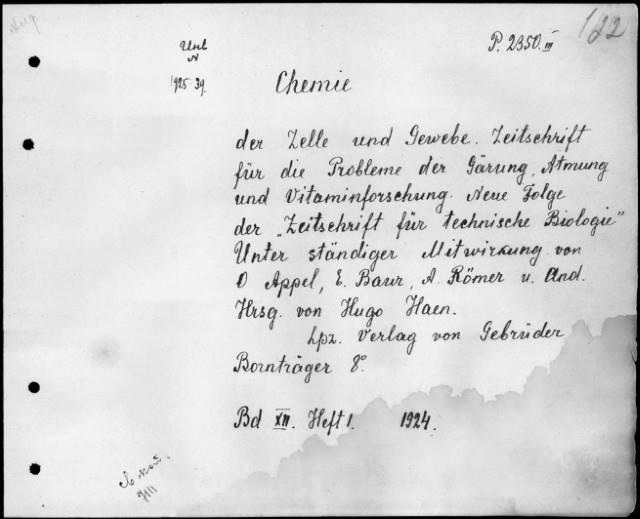 P. 2350.III
122
1925 39
Chemie
der Zelle und Gewebe. Zeitschrift
für die Probleme der Gärung, Atmung
und Vitaminforschung. Neue Folge
der „Zeitschrift für technische Biologie"
Unter ständiger Mitwirkung von
O Appel, E. Baur, A. Römer u. And.
Hrsg. von Hugo Haen.
Lpz. Verlag von Gebrüder
Bornträger 8°.
Bd XII. Heft 1. 1924.